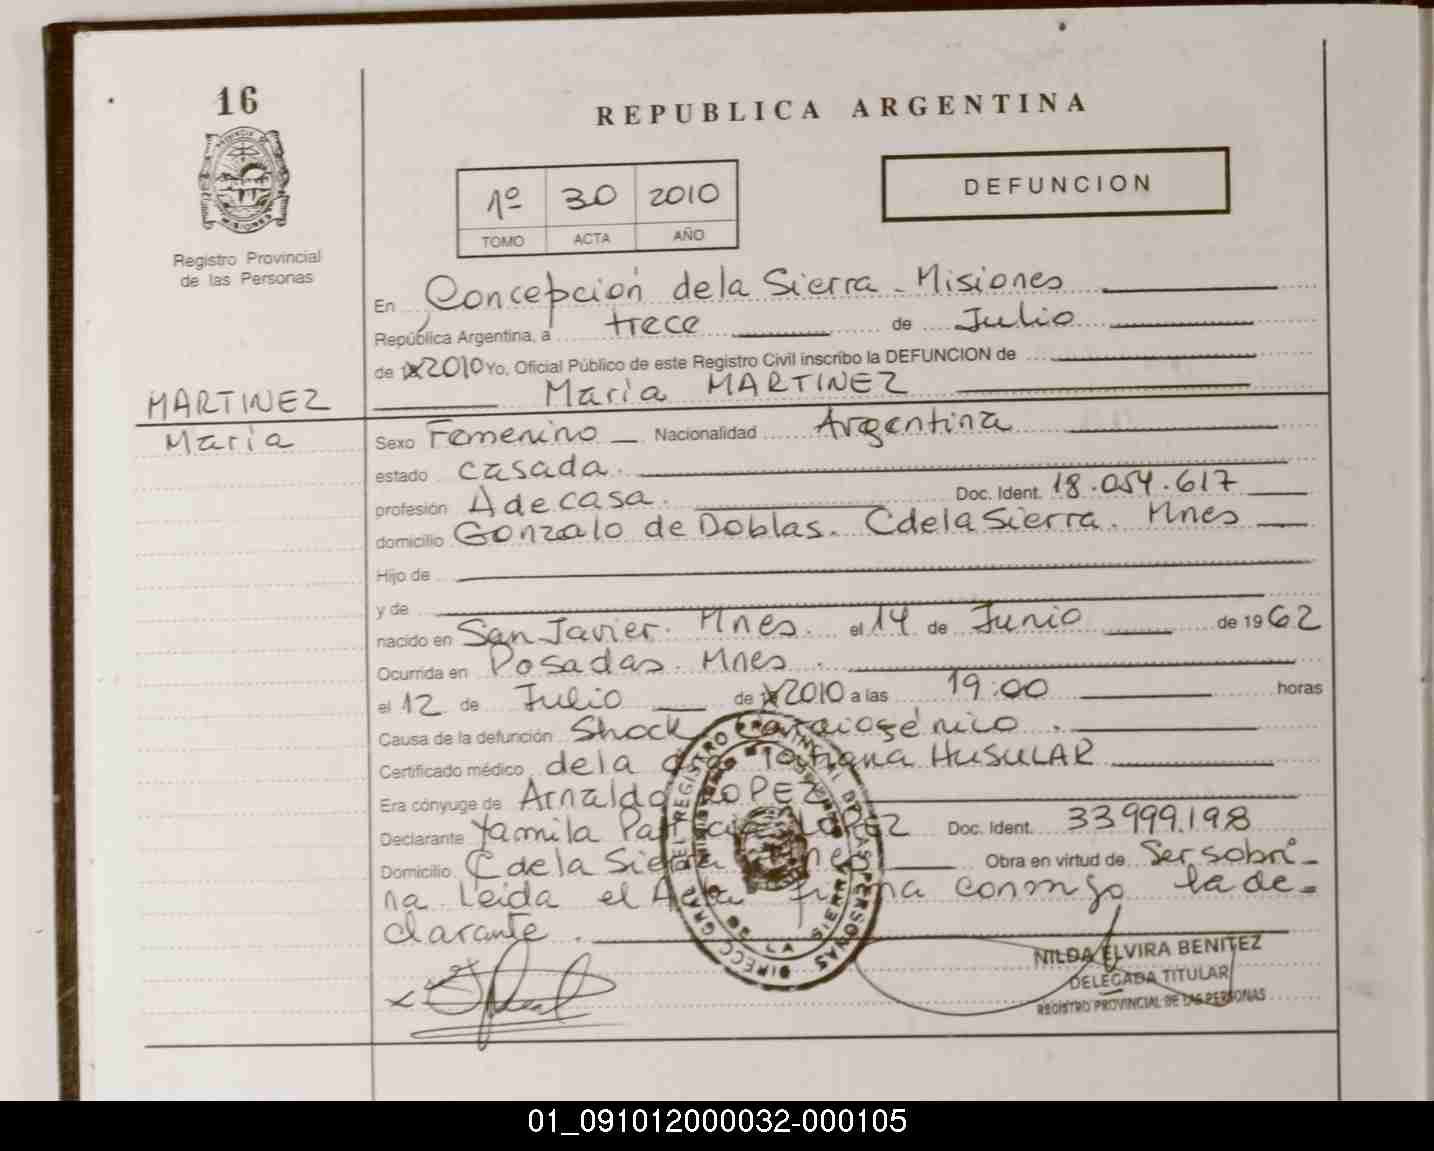 16
REPUBLICA ARGENTINA
PROVINCIA DE MISIONES
Registro Provincial
de las Personas
1º 30 2010
TOMO ACTA AÑO
DEFUNCION
En Concepción de la Sierra - Misiones
República Argentina, a trece de Julio
de 2010 Yo, Oficial Público de este Registro Civil inscribo la DEFUNCION de
MARTINEZ María MARTINEZ
María
Sexo Femenino Nacionalidad Argentina
estado casada.
profesión A de casa. Doc. Ident. 18.054.617
domicilio Gonzalo de Doblas. C de la Sierra. Mnes
Hijo de
y de
nacido en San Javier. Mnes. el 14 de Junio de 1962
Ocurrida en Posadas. Mnes.
el 12 de Julio de 2010 a las 19:00 horas
Causa de la defunción Shock Cardiogénico.
Certificado médico de la dra Tatiana HUSULAR
Era cónyuge de Arnaldo LOPEZ
Declarante Yamila Patricia LOPEZ Doc. Ident. 33999.198
Domicilio C de la Sierra Mnes Obra en virtud de Ser sobri-
na Leida el Acta firma conmigo la de-
clarante.
DIRECC GRAL DEL REGISTRO PROVINCIAL DE LAS PERSONAS
DE LA SIERRA
NILDA ELVIRA BENITEZ
DELEGADA TITULAR
REGISTRO PROVINCIAL DE LAS PERSONAS
01_091012000032-000105